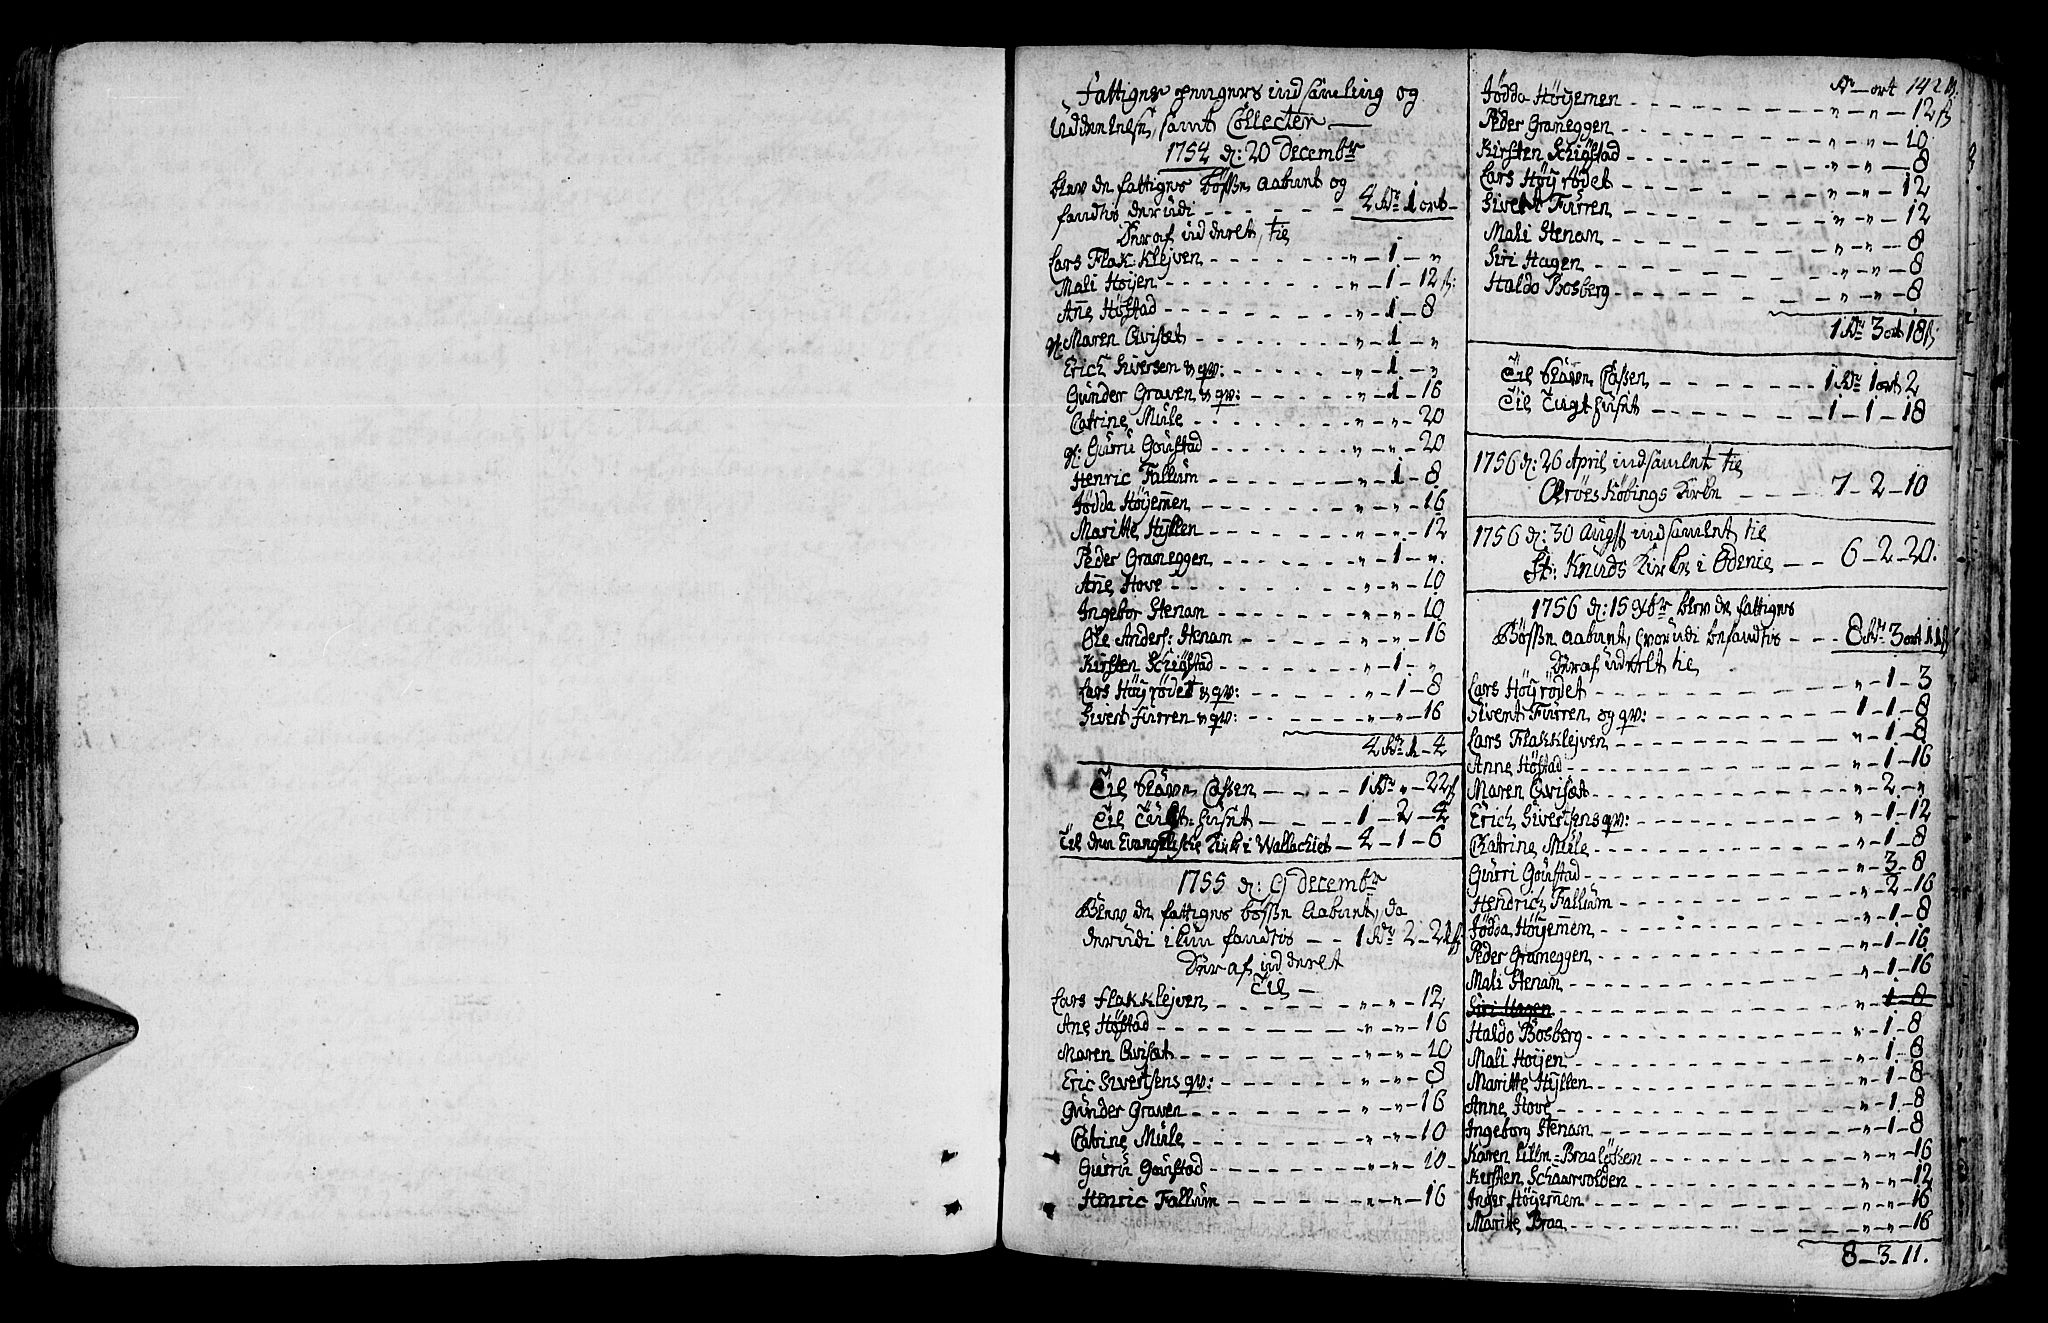 Fattiges penges indsamling og
Uddeelelse, samt Collecter
1754 d: 20 Decembr
blev de fattiges bøsse aabnt og
fandtis derudi - - - 4 Rdr 1 ort -
Deraf uddeelt til
Lars Flak-Klejven - - - " - 1 - "
Mali Höyen - - - " - 1 - 12 ß:
Añe Höstad - - - " - 1 - 8
Maren Qviset - - - " - 1 - "
Erich Siversen & qv: - - - " - 1 - "
Gunder Graven & qv: - - - " - 1 - 16
Catrine Mule - - - " - " - 20
Gurru Goustad - - - " - " - 20
Henric Fallum - - - " - 1 - 8
Jödda Höyem̄en - - - " - " - 16
Maritte Hyllen - - - " - " - 12
Peder Graneggen - - - " - 1 - "
Añe Hove - - - " - " - 10
Ingebor Stenam - - - " - " - 10
Ole Anders: Stenam - - - " - " - 16
Kirsten Schiöstad - - - " - 1 - "
Lars Höyrödet & qv: - - - " - 1 - 8
Sivert Furren & qv: - - - " - " - 16
4 Rdr 1 - 4
Til Cassen - - - 1 Rdr " - 22 ß
Til Tugthuset - - - 1 - 2 - 4
Til den Evangeliske Kirke i Wallachiet - 2 - 1 - 6
1755 d: 9 Decembr
Blev de fattiges bösse aabnt, da
derudi ikun fandtis - - 1 Rdr 2 - 2 ß
Deraf uddeelt
Til -
Lars Flakklejven - - - " - " - 12
Ane Höstad - - - " - " - 16
Maren Qvisæt - - - " - " - 10
Eric Sivertsens qv: - - - " - " - 8
Gunder Graven - - - " - " - 16
Catrine Mule - - - " - " - 10
Gurru Goustad - - - " - " - 10 -
Henric Fallum - - - " - " - 16
Rdr - ort 142 ß.
Jödda Höyemen - - - " - " - 12 ß
Peder Graneggen - - - " - " - 10
Kirsten Schiöstad - - - " - " - 8
Lars Höyrödet - - - " - " - 12
Sivert Furren - - - " - " - 12
Mali Stenam - - - " - " - 8
Siri Hagen - - - " - " - 8
Haldo Bosberg - - - " - " - 8
1 Rdr 3 ort 18 ß
Til Cassen - - - 1 Rdr 1 ort 2
Til Tugthuset - - - 1 - 1 - 18
1756 d: 26 April indsamlet til
Æröes Köbings Kirke - - - 7 - 2 - 10
1756 d: 30 Augst indsamlet til
St: Knuds Kirke i Odense - - 6 - 2 - 20.
1756 d: 15 Xbr blev de fattiges
Bøsse aabnt, hvorudi befandtis - - - 8 Rdr 3 ort 11 ß
Deraf uddelt til
Lars Höyrödet - - - " - 1 - 3
Sivent Furren og qv: - - - 1 - 1 - 8
Lars Flakklejven - - - " - 1 - 8
Anne Höstad - - - " - 1 - 16
Maren Qvisæt - - - " - 2 - "
Erich Sivertsens qv: - - - " - 1 - 12
Chatrine Mule - - - " - 1 - 8
Gurri Goustad - - - " - 3 - 8
Hendrich Fallum - - - " - 2 - 16
Jödda Höyem̄en - - - " - 1 - 8
Peder Graneggen - - - " - 1 - 16
Mali Stenam - - - " - 1 - 16
Siri Hagen - - - " - 1 - 8
Haldo Bosberg - - - " - 1 - 8
Mali Höyen - - - " - 1 - 8
Maritte Hyllen - - - " - 1 - 8
Anne Hove - - - " - 1 - 8
Ingeborg Stenam - - - " - 1 - 8
Karen Braaløkken - - - " - " - 16
Kirsten Schaarvolden - - - " - " - 12
Inger Höyemem - - - " - " - 16
Maritte Braa - - - " - " - 16
8 - 3 - 11.